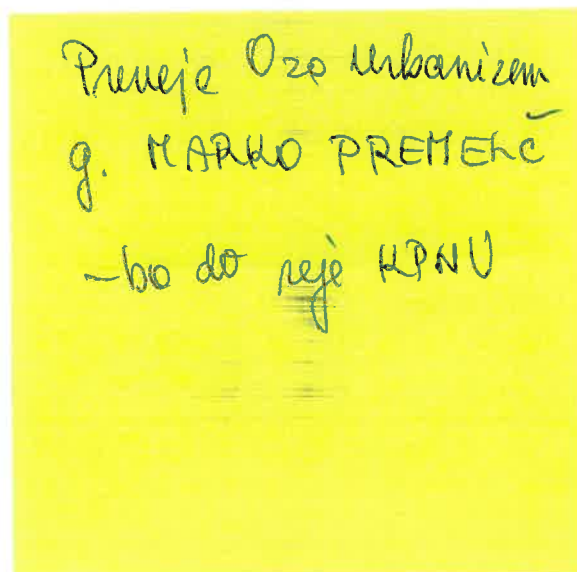 Preveje Ozo urbanizem
g. MARKO PREMELČ
- bo do seje KPNU